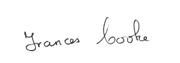 Frances Cooke